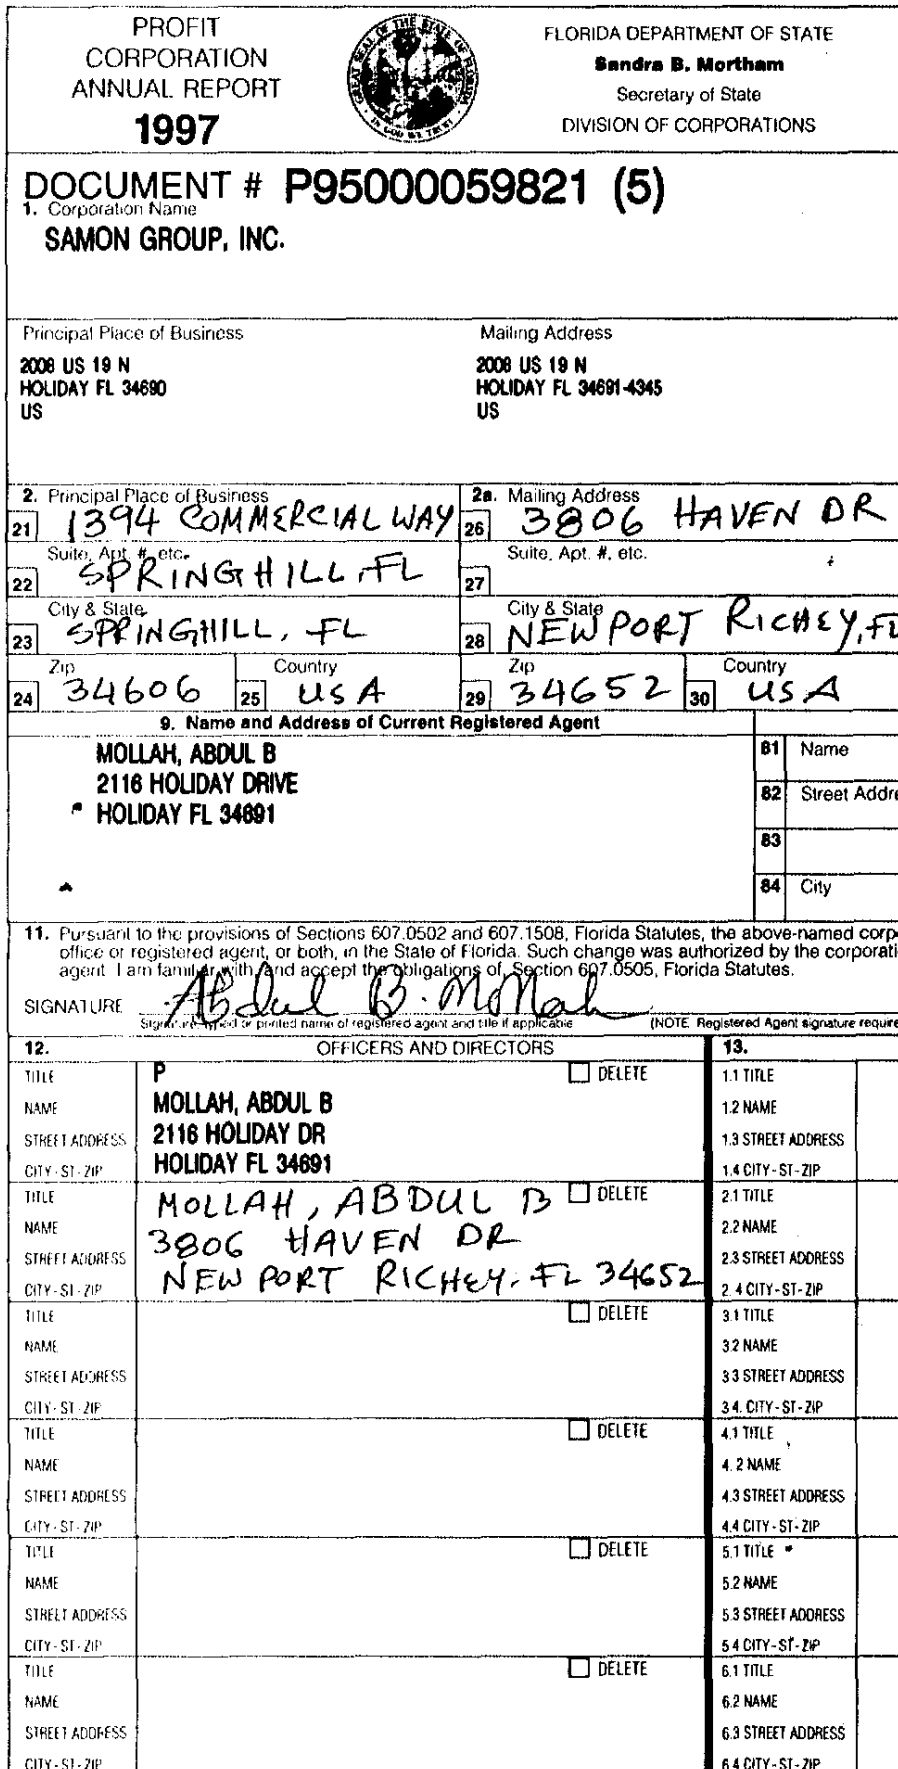 PROFIT
CORPORATION
ANNUAL REPORT
1997
GREAT SEAL OF THE STATE OF FLORIDA
IN GOD WE TRUST
FLORIDA DEPARTMENT OF STATE
Sandra B. Mortham
Secretary of State
DIVISION OF CORPORATIONS
DOCUMENT # P95000059821 (5)
1. Corporation Name
SAMON GROUP, INC.
Principal Place of Business
2008 US 19 N
HOLIDAY FL 34690
US
Mailing Address
2008 US 19 N
HOLIDAY FL 34691-4345
US
2. Principal Place of Business
21 1394 COMMERCIAL WAY
2a. Mailing Address
26 3806 HAVEN DR
Suite, Apt. #, etc.
22 SPRINGHILL, FL
Suite, Apt. #, etc.
27
City & State
23 SPRINGHILL, FL
City & State
28 NEW PORT RICHEY, FL
Zip
24 34606
Country
25 USA
Zip
29 34652
Country
30 USA
9. Name and Address of Current Registered Agent
MOLLAH, ABDUL B
2116 HOLIDAY DRIVE
HOLIDAY FL 34691
81 Name
82 Street Addre
83
84 City
11. Pursuant to the provisions of Sections 607.0502 and 607.1508, Florida Statutes, the above-named corp
office or registered agent, or both, in the State of Florida. Such change was authorized by the corporati
agent. I am familiar with, and accept the obligations of, Section 607.0505, Florida Statutes.
SIGNATURE Abdul B. Mollah
Signature, typed or printed name of registered agent and title if applicable
(NOTE: Registered Agent signature require
12. OFFICERS AND DIRECTORS
13.
TITLE P DELETE
NAME MOLLAH, ABDUL B
STREET ADDRESS 2116 HOLIDAY DR
CITY-ST-ZIP HOLIDAY FL 34691
1.1 TITLE
1.2 NAME
1.3 STREET ADDRESS
1.4 CITY-ST-ZIP
TITLE MOLLAH, ABDUL B DELETE
NAME 3806 HAVEN DR
STREET ADDRESS
CITY-ST-ZIP NEW PORT RICHEY, FL 34652
2.1 TITLE
2.2 NAME
2.3 STREET ADDRESS
2.4 CITY-ST-ZIP
TITLE DELETE
NAME
STREET ADDRESS
CITY-ST-ZIP
3.1 TITLE
3.2 NAME
3.3 STREET ADDRESS
3.4. CITY-ST-ZIP
TITLE DELETE
NAME
STREET ADDRESS
CITY-ST-ZIP
4.1 TITLE
4.2 NAME
4.3 STREET ADDRESS
4.4 CITY-ST-ZIP
TITLE DELETE
NAME
STREET ADDRESS
CITY-ST-ZIP
5.1 TITLE
5.2 NAME
5.3 STREET ADDRESS
5.4 CITY-ST-ZIP
TITLE DELETE
NAME
STREET ADDRESS
CITY-ST-ZIP
6.1 TITLE
6.2 NAME
6.3 STREET ADDRESS
6.4 CITY-ST-ZIP